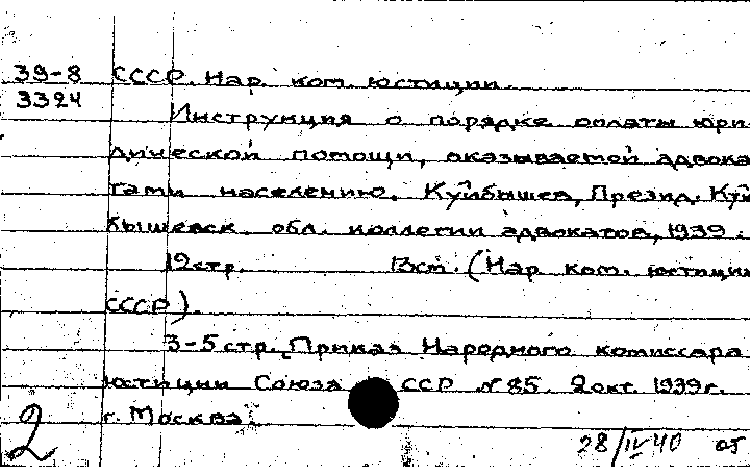 39-8 СССР. Нар. ком. юстиции.
3324
Инструкция о порядке оплаты юри-
дической помощи, оказываемой адвока-
тами населению. Куйбышев, Презид. Куй-
бышевск. обл. коллегии адвокатов, 1939.
12стр. (Нар. ком. юстиции
СССР).
3-5 стр. Приказ Народного комиссара
юстиции Союза ССР № 85. 2 окт. 1939г.
г. Москва.
2 28/IV 40